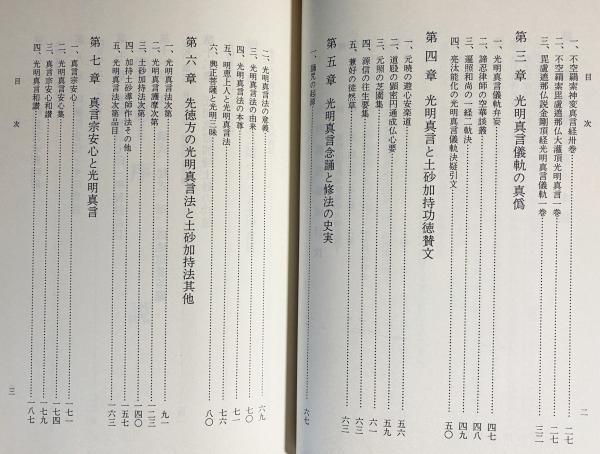 目次
二
一、不空羂索神変真言経卅巻……二七
二、不空羂索毘盧遮那仏大灌頂光明真言一巻……二七
三、毘盧遮那仏説金剛頂経光明真言儀軌一巻……三三
第三章 光明真言儀軌の真偽
一、光明真言儀軌弁妄……四七
二、諦忍律師の空華談叢……四八
三、暹照和尚の一経二軌決……四九
四、亮汰能化の光明真言儀軌決疑引文……五〇
第四章 光明真言と土砂加持功徳賛文
一、元暁の遊心安楽道……五六
二、道𣴴の顕密円通成仏心要……五九
三、元照の芝薗集……六一
四、源信の往生要集……六三
五、兼好の徒然草……六三
第五章 光明真言念誦と修法の史実
一、誦咒の起源……六七
二、光明真言法の意義……六九
三、光明真言法の由来……七〇
四、光明真言法の本尊……七一
五、明恵上人と光明真言法……七六
六、興正菩薩と光明三昧……八〇
第六章 先徳方の光明真言法と土砂加持法其他
一、光明真言法次第……九一
二、光明真言護摩次第……一二三
三、土砂加持法次第……一四〇
四、加持土砂導師作法その他……一五七
五、光明真言法次第品目……一六三
第七章 真言宗安心と光明真言
一、真言宗安心……一七一
二、光明真言安心集……一七四
三、真言宗安心和讃……一七九
四、光明真言和讃……一八七
目次
三